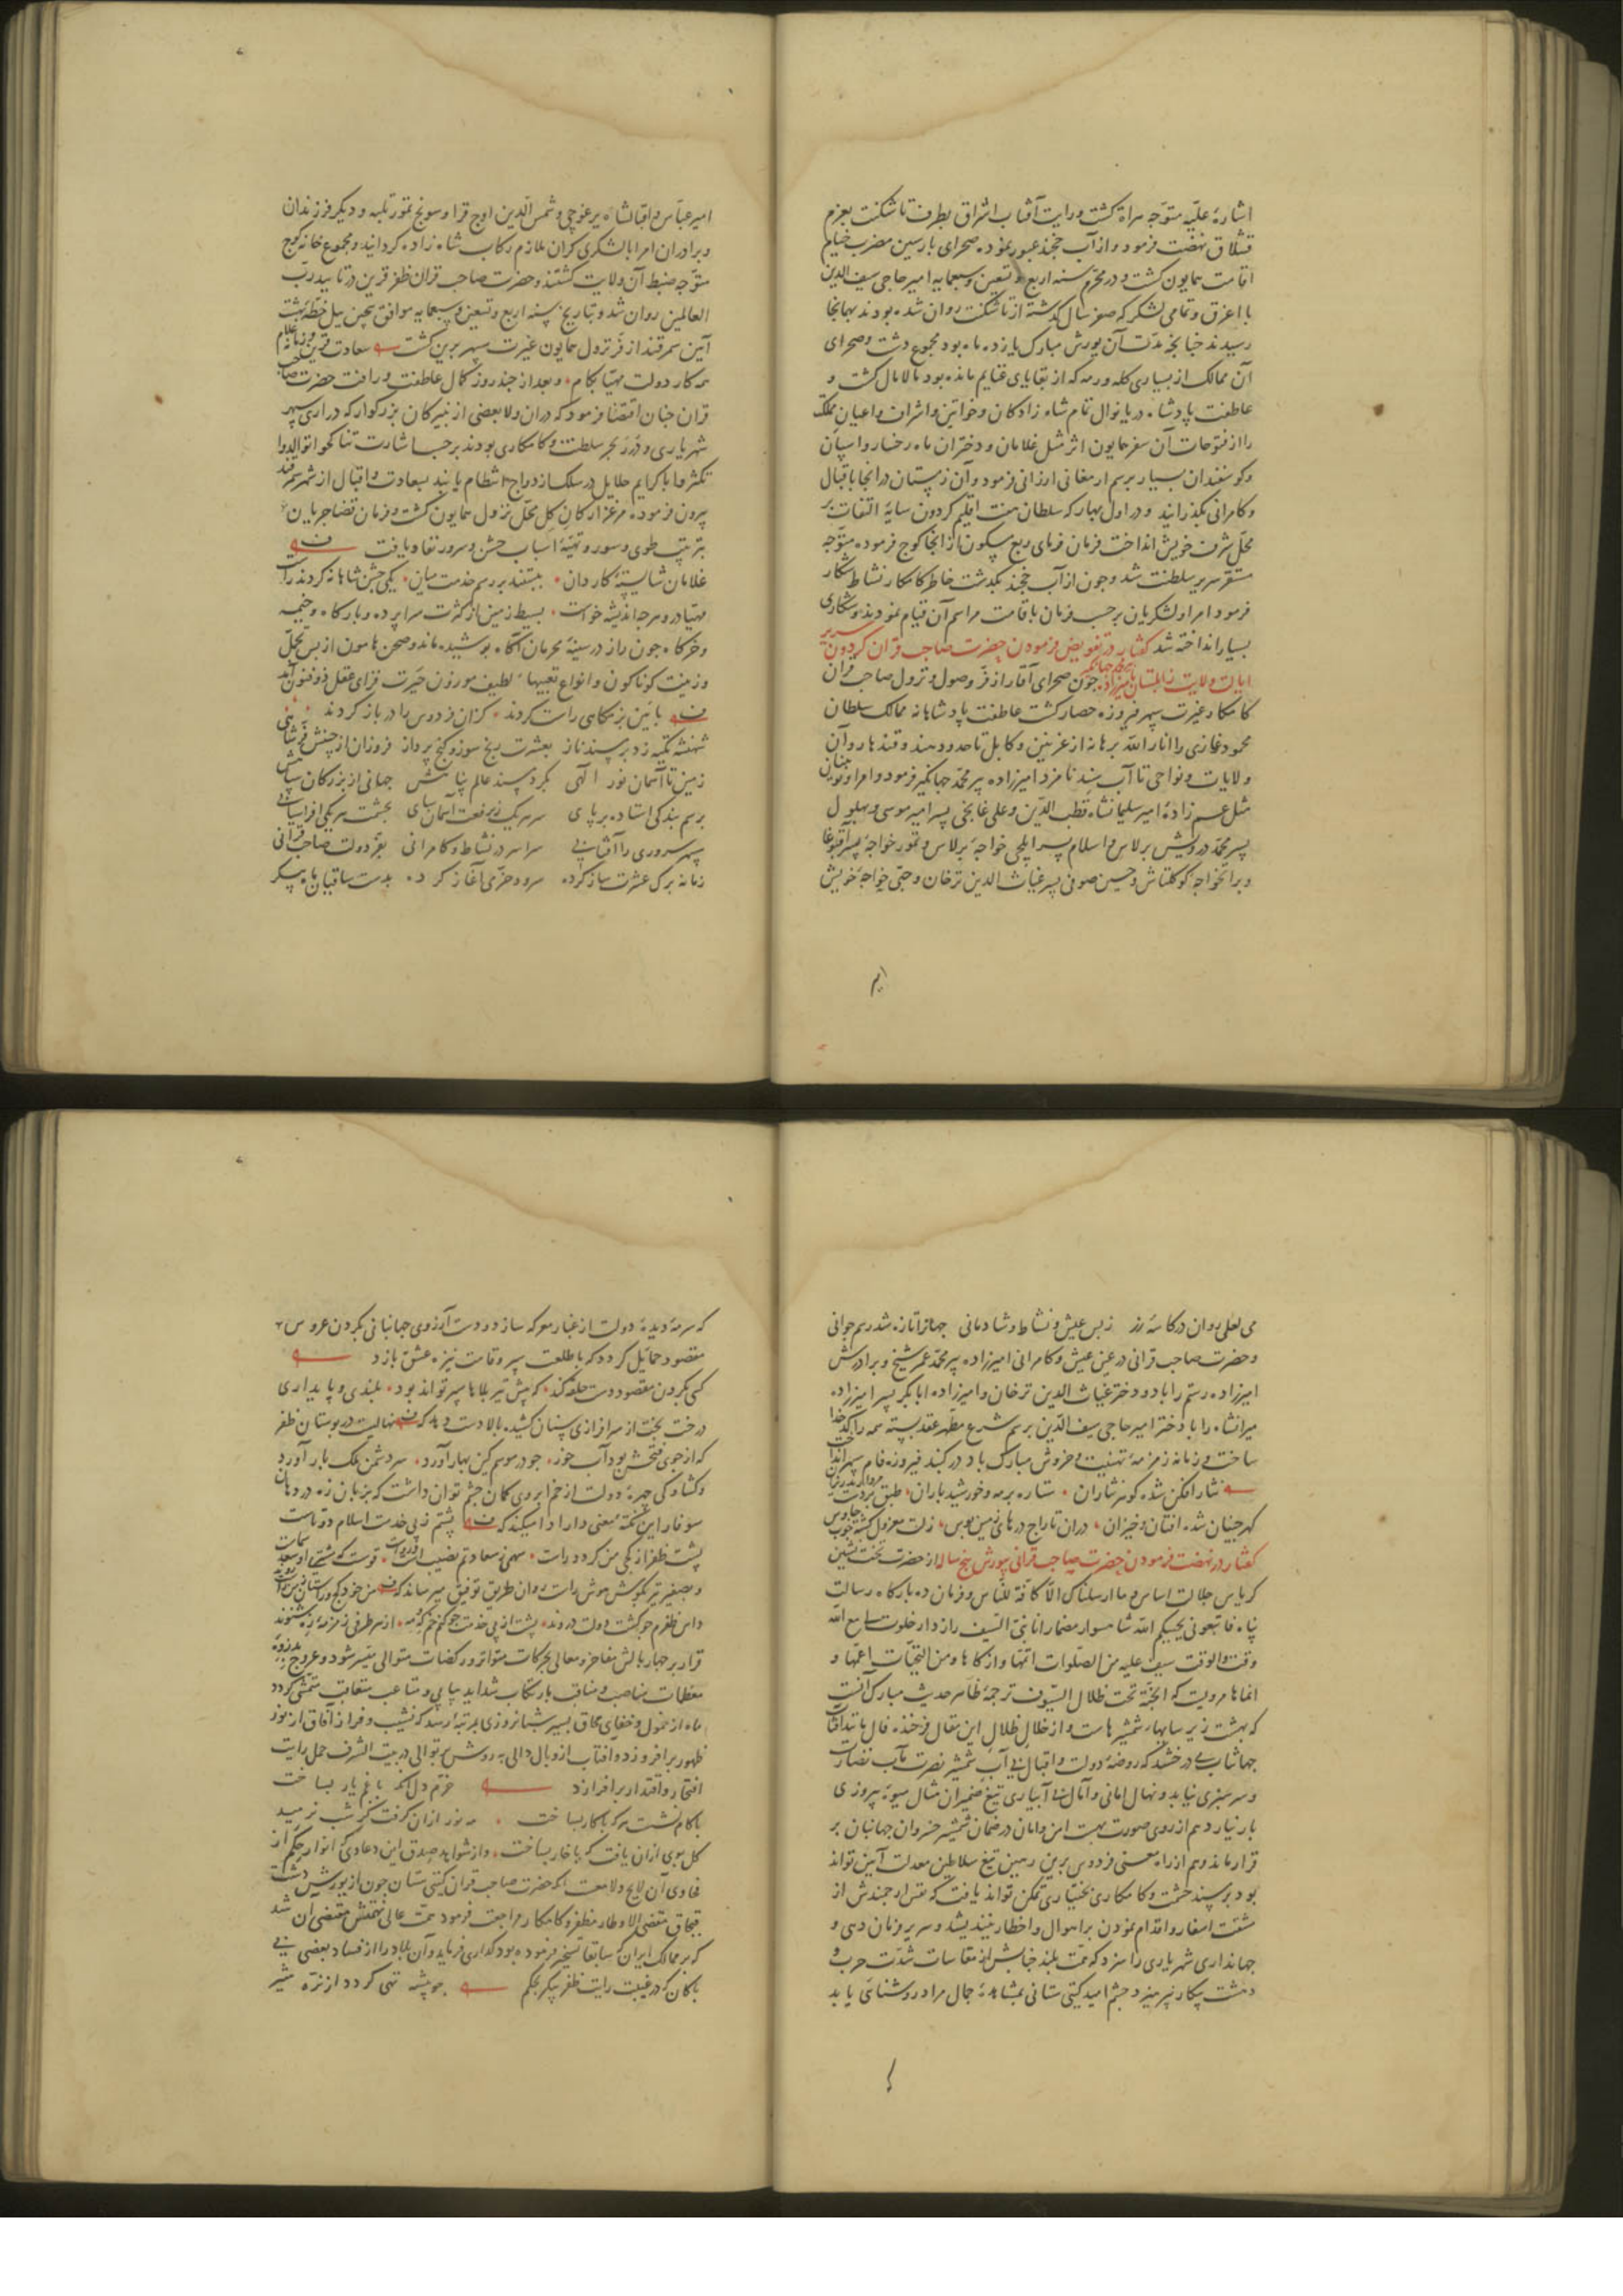 اشارۀ علیّه متوّجه هراة کشت و رایت آفتاب اشراق بطرف تاشکنت بعزم
قشلاق نهضت فرمود و از آب خجند عبور نموده صحرای بارسین مضرب خیام
اقامت همایون کشت و در محرّم سنه اربع و تسعین و سبعمایه امیر حاجی سیف الدین
با اغرق و تمامی لشکر که صفر سال کذشته از تاشکنت روان شده بودند بهمانجا
رسیدند چنانچه مدّت آن یورش مبارک یازده ماه بود و مجموع دشت و صحرای
آن ممالک از بسیاری کله و رمه که از بقایای غنایم مانده بود مالامال کشت و
عاطفت پادشاه دریانوال تمام شاه زادکان و خواتین و اشراف و اعیان مملکت
را از فتوحات آن سفر همایون اثر مثل غلامان و دختران ماه رخسار و اسپان
و کوسفندان بسیار برسم ارمغانی ارزانی فرمود و آن زمستان در انجا باقبال
و کامرانی بکذرانید و در اول بهار که سلطان هفت اقلیم کردون سایۀ التفات بر
محلّ شرف خویش انداخت فرمان فرمای ربع مسکون از انجا کوچ فرموده متوّجه
مستقر سریر سلطنت شد و جون از آب خجند بکدشت خاطر کامکار نشاط شکار
فرمود امرا و لشکریان برحسب فرمان باقامت مراسم آن قیام نمودند و شکاری
بسیار انداخته شد کفتار در تفویض فرمودن حضرت صاحب قران کردون سریر
ایالت ولایت زابلستان بامیرزاده پیر محمد جهانکیر جون صحرای آقار از فرّ وصول و نزول صاحب قران
کامکار غیرت سپهر فیروزه حصار کشت عاطفت پادشاهانه ممالک سلطان
محمود غازی را انار الله برهانه از غزنین و کابل تا حدود هند و قندهار و آن
ولایات و نواحی تا آب سند نامزد امیرزاده پیر محمّد جهانکیر فرمود و امرا و نوینان
مثل عم زادۀ امیر سلیمانشاه قطب الدّین و علی غابجی پسر امیر موسی و بهلول
پسر محمّد درویش برلاس و اسلام پسر ایلچی خواجۀ برلاس و تمور خواجۀ پسر آقبوغا
و براتخواجه کوکلتاش و حسین صوفی پسر غیاث الدین ترخان و حبّی خواجه خویش
امیر عبّاس و اقبالشاه یرغوچی و شمس الدّین اوج قرا و سونج تمور تلبه و دیکر فرزندان
و برادران امرا با لشکری کران ملازم رکاب شاه زاده کردانید و مجموع خانه کوچ
متوّجه ضبط آن ولایت کشتند و حضرت صاحب قران ظفر قرین در تایید ربّ
العالمین روان شد و بتاریخ سنه اربع و تسعین و سبعمایه موافق بیچن ییل خطّۀ بهشت
آیین سمرقند از فرّ نزول همایون غیرت سپهر برین کشت سعادت قرین و زمانه غلام
همه کار دولت مهیّا بکام و بعد از چند روز کمال عاطفت و رافت حضرت صاحب
قران جنان اقتضا فرمود که دران ولا بعضی از نبیرکان بزرکوار که دراری سپهر
شهریاری و درر بحر سلطنت و کامکاری بودند برحسب اشارت تناکحوا توالدوا
تکثروا با کرایم حلایل در سلک ازدواج انتظام یابند بسعادت و اقبال از شهر سمرقند
بیرون فرموده مرغزار کان کل محلّ نزول همایون کشت و فرمان قضا جریان
بترتیب طوی و سور و تهیّۀ اسباب جشن و سرور نفاذ یافت
غلامان شایستۀ کاردان ببستند بر رسم خدمت میان یکی جشن شاهانه کردند راست
مهیّا درو هرچه اندیشه خواست بسیط زمین از کثرت سراپرده و بارکاه و خیمه
و خرکاه جون راز در سینۀ محرمان آکاه پوشیده ماند و صحن هامون از بس تجمّل
و زینت کوناکون و انواع تعبیهاء لطیف موزون حیرت فزای عقل ذوفنون آمد
بآیین بزمکاهی راست کردند کزان فردوس را در باز کردند
شهنشه تکیه زد بر مسند ناز بعشرت رنج سوز و کنج پرداز فروزان از جبینش فرّ شاهی
زمین تا آسمان نور الهی بکرد مسند عالم پناهش جهانی از بزرکان سپاهش
برسم بندکی استاده برپای سر هر یک ز رفعت آسمان سای بحشمت هر یکی افراسیابی
سپهر سروری را آفتابی سراسر در نشاط و کامرانی بفرّ دولت صاحب قرانی
زمانه برک عشرت ساز کرده سرود خرّمی آغاز کرده بدست ساقیان ماه پیکر
می لعلی روان در کاسۀ زر زبس عیش و نشاط و شادمانی جهانرا تازه شد رسم جوانی
و حضرت صاحب قرانی در عین عیش و کامرانی امیرزاده پیر محمّد عمر شیخ و برادرش
امیرزاده رستم را با دو دختر غیاث الدین ترخان و امیرزاده ابابکر پسر امیرزاده
میرانشاه را با دختر امیر حاجی سیف الدّین برسم شرع مطهّر عقد بسته همه را کدخدا
ساخت و زمانه زمزمۀ تهنیت و خروش مبارک باد در کنبد فیروزه فام سپهر انداخت
نثار افکن شده کوهر نثاران ستاره بر مه و خورشید باران طبق
کهر جینان شده افتان و خیزان دران تاراج درهای زمین بوس
کفتار در نهضت فرمودن حضرت صاحب قرانی بیورش پنج ساله از حضرت تخت نشین
کریاس جلالت اساس و ما ارسلناک الّا کافّة للنّاس و فرمان ده بارکاه رسالت
پناه فاتبعونی یحببکم الله شاهسوار مضمار انا نبیّ السّیف راز دار خلوت لی مع الله
وقت و الوقت سیف علیه من الصّلوات اتمّها و ازکاها و من التحیّات اعمّها و
انماها مرویست که الجنّة تحت ظلال السّیوف ترجمۀ ظاهر حدیث مبارک آنست
که بهشت زیر سایهاء شمشیرهاست و از خلال ظلال این مقال فرخنده فال
جهانتاب می درخشد که روضۀ دولت و اقبال بی آب شمشیر نصرت مآب نضارت
و سرسبزی نیابد و نهال امانی و آمال بی آبیاری تیغ ضمیران مثال میوۀ پیروزی
بار نیارد هم از روی صورت بهشت امن و امان در ضمان شمشیر خسروان جهانبان بر
قرار ماند و هم از راه معنی فردوس برین رهین تیغ سلاطین معدلت آیین تواند
بود بر مسند حشمت و کامکاری بختیاری تمکّن تواند یافت که نفس ارجمندش از
مشقت اسفار و اقدام نمودن بر اهوال و اخطار نیندیشد و سریر فرمان دهی و
جهانداری شهریاری را سزد که همّت بلند جنابش از مقاسات شدّت حرب و
دهشت پیکار نپرهیزد و جشم امید کیتی ستانی بمشاهدۀ جمال مراد روشنائی یابد
که سرمۀ دیدۀ دولت از غبار معرکه سازد و دست آرزوی جهانبانی بکردن عروس
مقصود حمایل کردد که با طلعت سپر و قامت نیزه عشق بازد
کسی بکردن مقصود دست حلقه کند که پیش تیر بلاها سپر تواند بود بلندی و پایداری
درخت بخت از سرافرازی سنان کشیده بالا دست دهد که نهالیست در بوستان ظفر
که از جوی فتحش بود آب خور جو در موسم کین بهار آورد سر دشمن ملک بار آورد
و کشادکی چهرۀ دولت از خم ابروی کمان جشم توان داشت که بزبان زه در دهان
سوفار این نکتۀ معنی دار ادا میکند که پشتم ز پی خدمت اسلام دوتاست
پشت ظفر از کجی من کردد راست
و بصفیر تیر بکوش هوش راست روان طریق توفیق میرساند که
قرار بر جهار بالش مفاخر و معالی بحرکات متواتر و رکضات متوالی میّسر شود و عروج
معظمات مناصب و مناقب بارتکاب شداید پیاپی و متاعب متعاقب متمشّی کردد
ماه از خمول و خفای محاق بسیر شبانروزی بمرتبۀ رسد که نشیب و فراز آفاق از نور
ظهور برافروزد و آفتاب از وبال دالی بروش متوالی در بیت الشرف حمل رایت
افتخار و اقتدار برافرازد خرّم دل آنکه با غم یار بساخت
با کام نشست هر که با کار بساخت مه نور ازان کرفت کز شب نرمید
کل بوی ازان یافت که با خار بساخت و از شواهد صدق این دعاوی که انوار حکم از
فحاوی آن لایح و لامعست آنکه حضرت صاحب قران کیتی ستان جون از یورش دشت
قبجاق مقضی الاوطار مظفّر و کامکار مراجعت فرمود همّت عالی نهمتش مقتضی آن شد
که بر ممالک ایران که سابقا تسخیر فرموده بود کذاری فرماید و آن بلاد را از فساد بعضی بی
باکان که در غیبت رایت ظفر پیکر بحکم جو بیشه تهی کردد از نرّه شیر